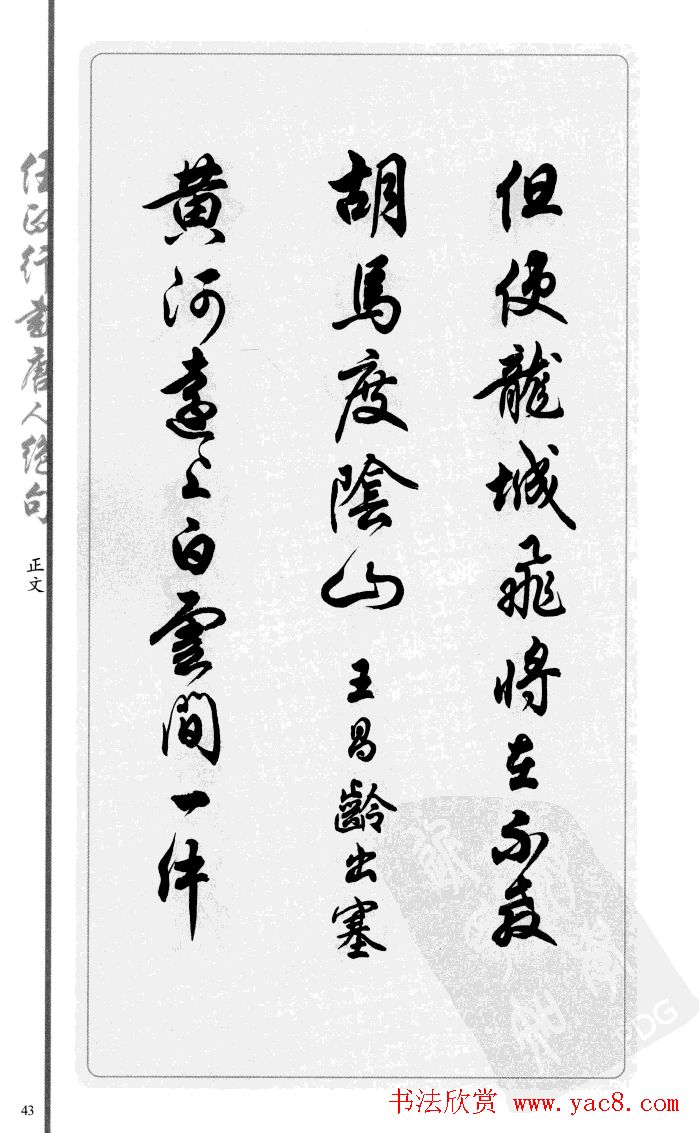 但使龍城飛將在不教
胡馬度陰山 王昌齡出塞
黄河遠上白雲間一片
任政行書唐人絕句
正文
43
书法欣赏 www.yac8.com
PDG